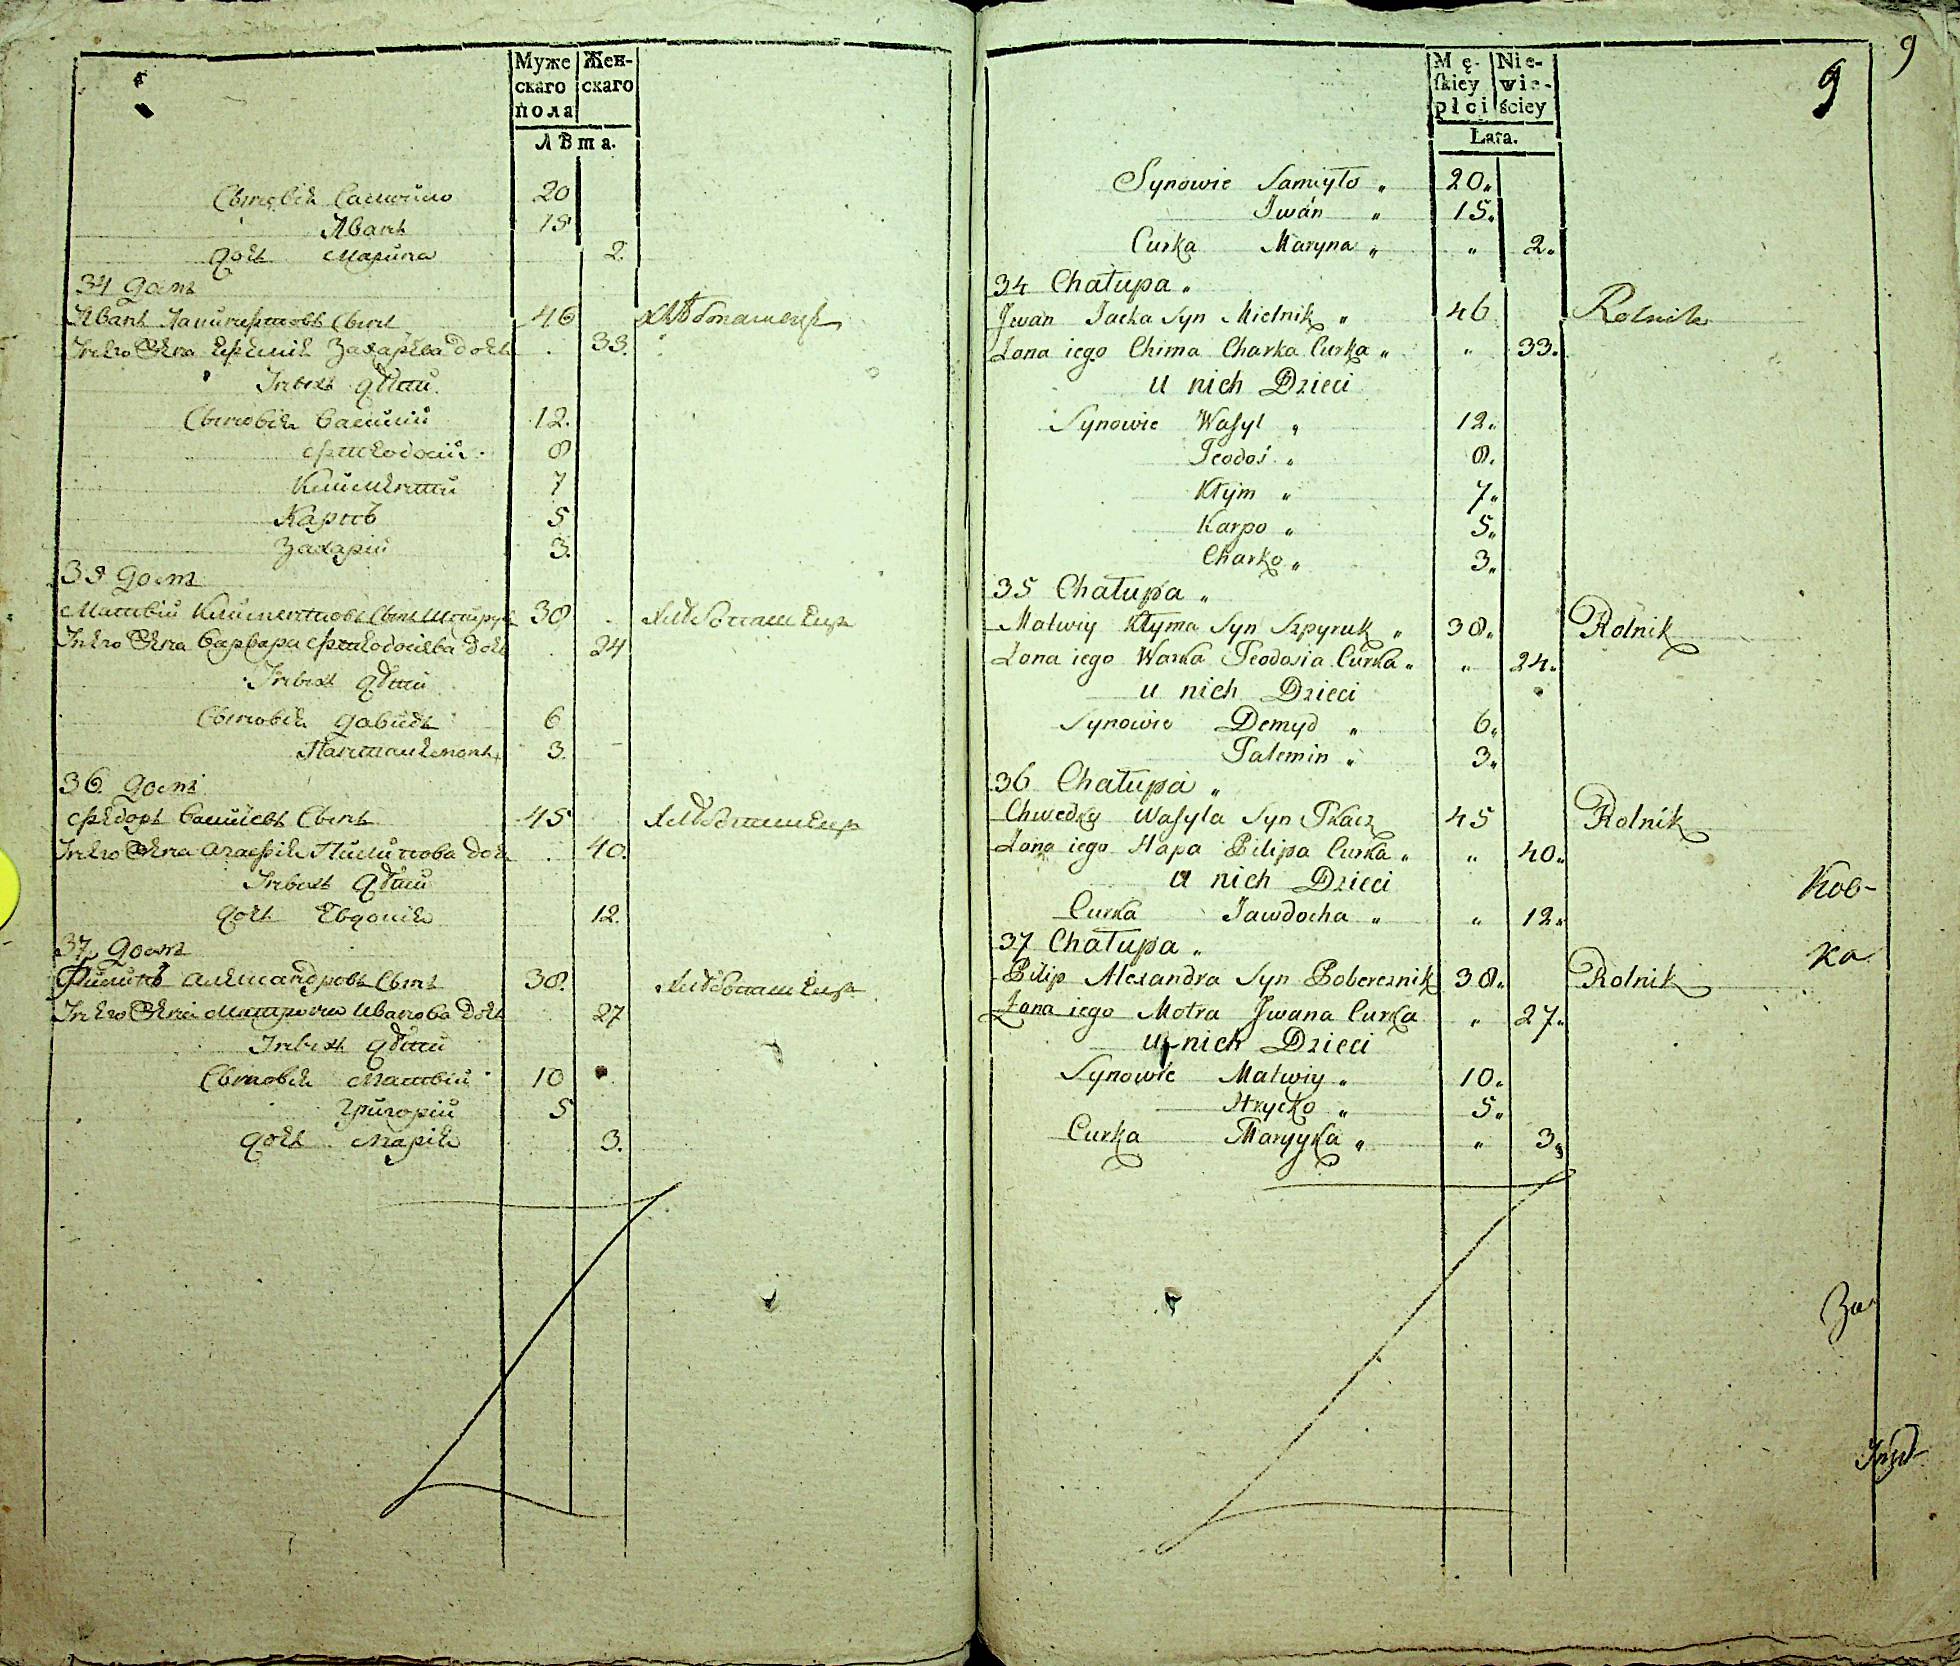 Муже Жен-
скаго скаго
пола
Лѣта.
Сынов Самойло 20
Иванъ 15
Дочь Марина 2.
34 Домъ
Иванъ Сынъ 46 Хлѣбопашецъ
Жена Захарьева Дочь 33.
Дѣти
Сыновья Василий 12.
Феодосий 8
Климентий 7
Карпъ 5
Захарий 3.
35 Домъ
Матвий Климентиовъ Сынъ 38 Хлѣбопашецъ
Жена Варвара Феодосиева Дочь 24
Дѣти
Сыновья Давидъ 6
Пантилимонъ 3.
36 Домъ
Федоръ Василіевъ Сынъ 45 Хлѣбопашецъ
Жена Агафия Пилипова Дочь 40.
Дѣти
Дочь Евдокия 12.
37 Домъ
Филипъ Александровъ Сынъ 38. Хлѣбопашецъ
Жена Матрона Иванова Дочь 27
Дѣти
Сыновья Матвий 10
Григорий 5
Дочь Мария 3.
9
9
Mę- Nie-
skiey wie-
płci ściey
Lata.
Synowie Samiyło „ 20„
Jwan „ 15„
Curka Maryna „ „ 2„
34 Chałupa „
Jwan Jacka Syn Mielnik „ 46 Rolnik
Zona iego Chima Charka Curka „ „ 33„
u nich Dzieci
Synowie Wasyl „ 12„
Teodos „ 8„
Kłym „ 7„
Karpo „ 5„
Charko „ 3„
35 Chałupa „
Matwiy Kłyma Syn Szpyruk „ 38„ Rolnik
Zona iego Warka Teodosia Curka „ „ 24„
u nich Dzieci
Synowie Demyd „ 6„
Palemin „ 3„
36 Chałupa „
Chwedko Wasyla Syn Tkacz 45 Rolnik
Zona iego Hapa Pilipa Curka „ „ 40„
u nich Dzieci
Curka Jawdocha „ „ 12„
Kob-
37 Chałupa „
ka
Pilip Alexandra Syn Pobereznik 38„ Rolnik
Zona iego Motra Jwana Curka „ 27„
u nich Dzieci
Synowie Matwiy „ 10„
Hrycko „ 5„
Curka Maryyka „ „ 3„
За